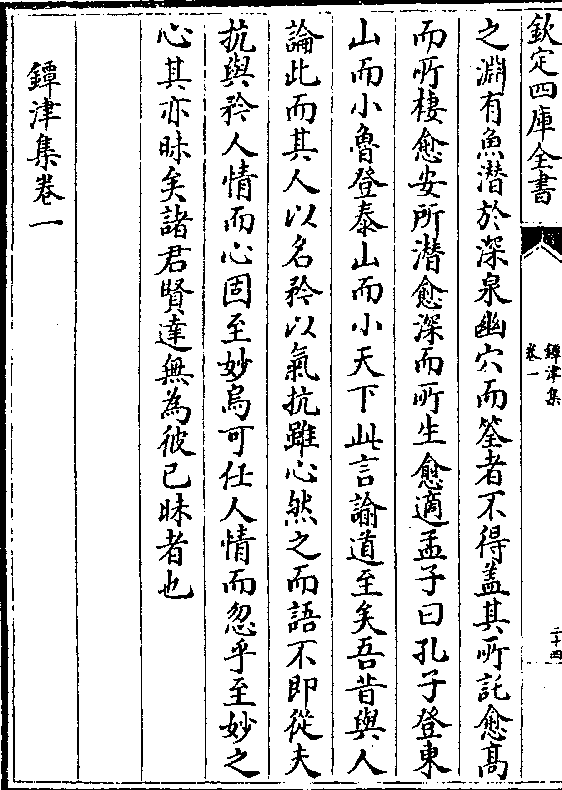 欽定四庫全書
鐔津集
卷一
二十四
之淵有魚潛於深泉幽穴而筌者不得蓋其所託愈髙
而所棲愈安所潛愈深而所生愈適孟子曰孔子登東
山而小魯登泰山而小天下此言諭道至矣吾昔與人
論此而其人以名矜以氣抗雖心然之而語不即從夫
抗與矜人情而心固至妙烏可任人情而忽乎至妙之
心其亦昧矣諸君賢達無為彼已昧者也
鐔津集卷一